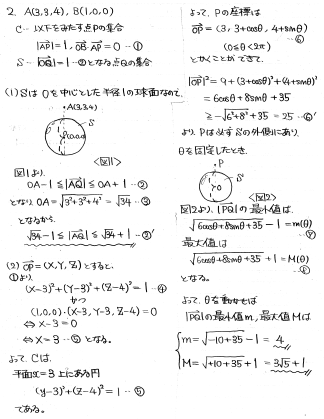 2. A(3,3,4), B(1,0,0)
C…以下をみたす点Pの集合
|AP|=1, OB・AP=0 …①
S…|OQ|=1 …② となる点Qの集合
(1) SはOを中心とした半径1の球面なので、
・A(3,3,4)
S
<図1>
図1より、
OA-1≦|AQ|≦OA+1 …③
となり OA=√3²+3²+4²=√34 …③
となるから
√34-1≦|AQ|≦√34+1 …③'
(2) OP=(X,Y,Z)とすると、
①より
(X-3)²+(Y-3)²+(Z-4)²=1 …④
かつ
(1,0,0)・(X-3,Y-3,Z-4)=0
⇔ X-3=0
⇔ X=3 …⑤ となる。
よって Cは、
平面x=3上にある円
(y-3)²+(z-4)²=1 …⑤
である。
よって、Pの座標は
OP=(3, 3+cosθ, 4+sinθ) …⑥
(0≦θ<2π)
とかくことができて、
|OP|²=9+(3+cosθ)²+(4+sinθ)²
=6cosθ+8sinθ+35
≧-√6²+8²+35=25 …⑥'
より Pは必ずSの外側にあり
θを固定したとき、
P
S
O
<図2>
図2より、|PQ|の最小値は、
√6cosθ+8sinθ+35-1=m(θ) …⑦
最大値は
√6cosθ+8sinθ+35+1=M(θ) …⑧
となる。
よって、θを動かせば
|PQ|の最小値m, 最大値Mは
m=√-10+35-1=4
M=√+10+35+1=3√5+1